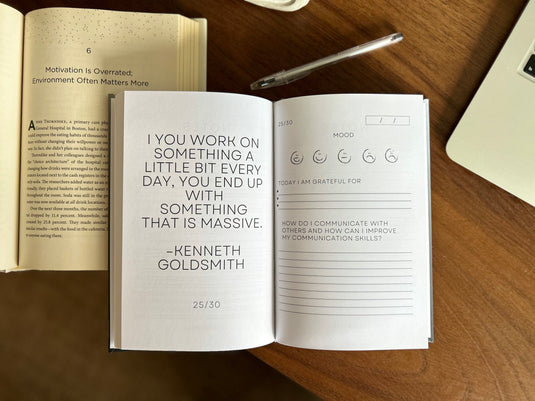 6
Motivation Is Overrated;
Environment Often Matters More
General Hospital in Boston, had a
would improve the eating habits of thousands
without changing their willpower or
In fact, she didn't plan on talking to them
Thorndike and her colleagues designed a
the "choice architecture" of the hospital
changing how drinks were arranged in the room.
located next to the cash registers in the
only soda. The researchers added water as an
tionally, they placed baskets of bottled water
throughout the room. Soda was still in the
was now available at all drink locations.
Over the next three months, the number of
dropped by 11.4 percent. Meanwhile,
creased by 25.8 percent. They made similar
similar results—with the food in the cafeteria.
anyone eating there.
I YOU WORK ON
SOMETHING A
LITTLE BIT EVERY
DAY, YOU END UP
WITH
SOMETHING
THAT IS MASSIVE.
–KENNETH
GOLDSMITH
25/30
25/30
/ /
MOOD
TODAY I AM GRATEFUL FOR
HOW DO I COMMUNICATE WITH
OTHERS AND HOW CAN I IMPROVE
MY COMMUNICATION SKILLS?